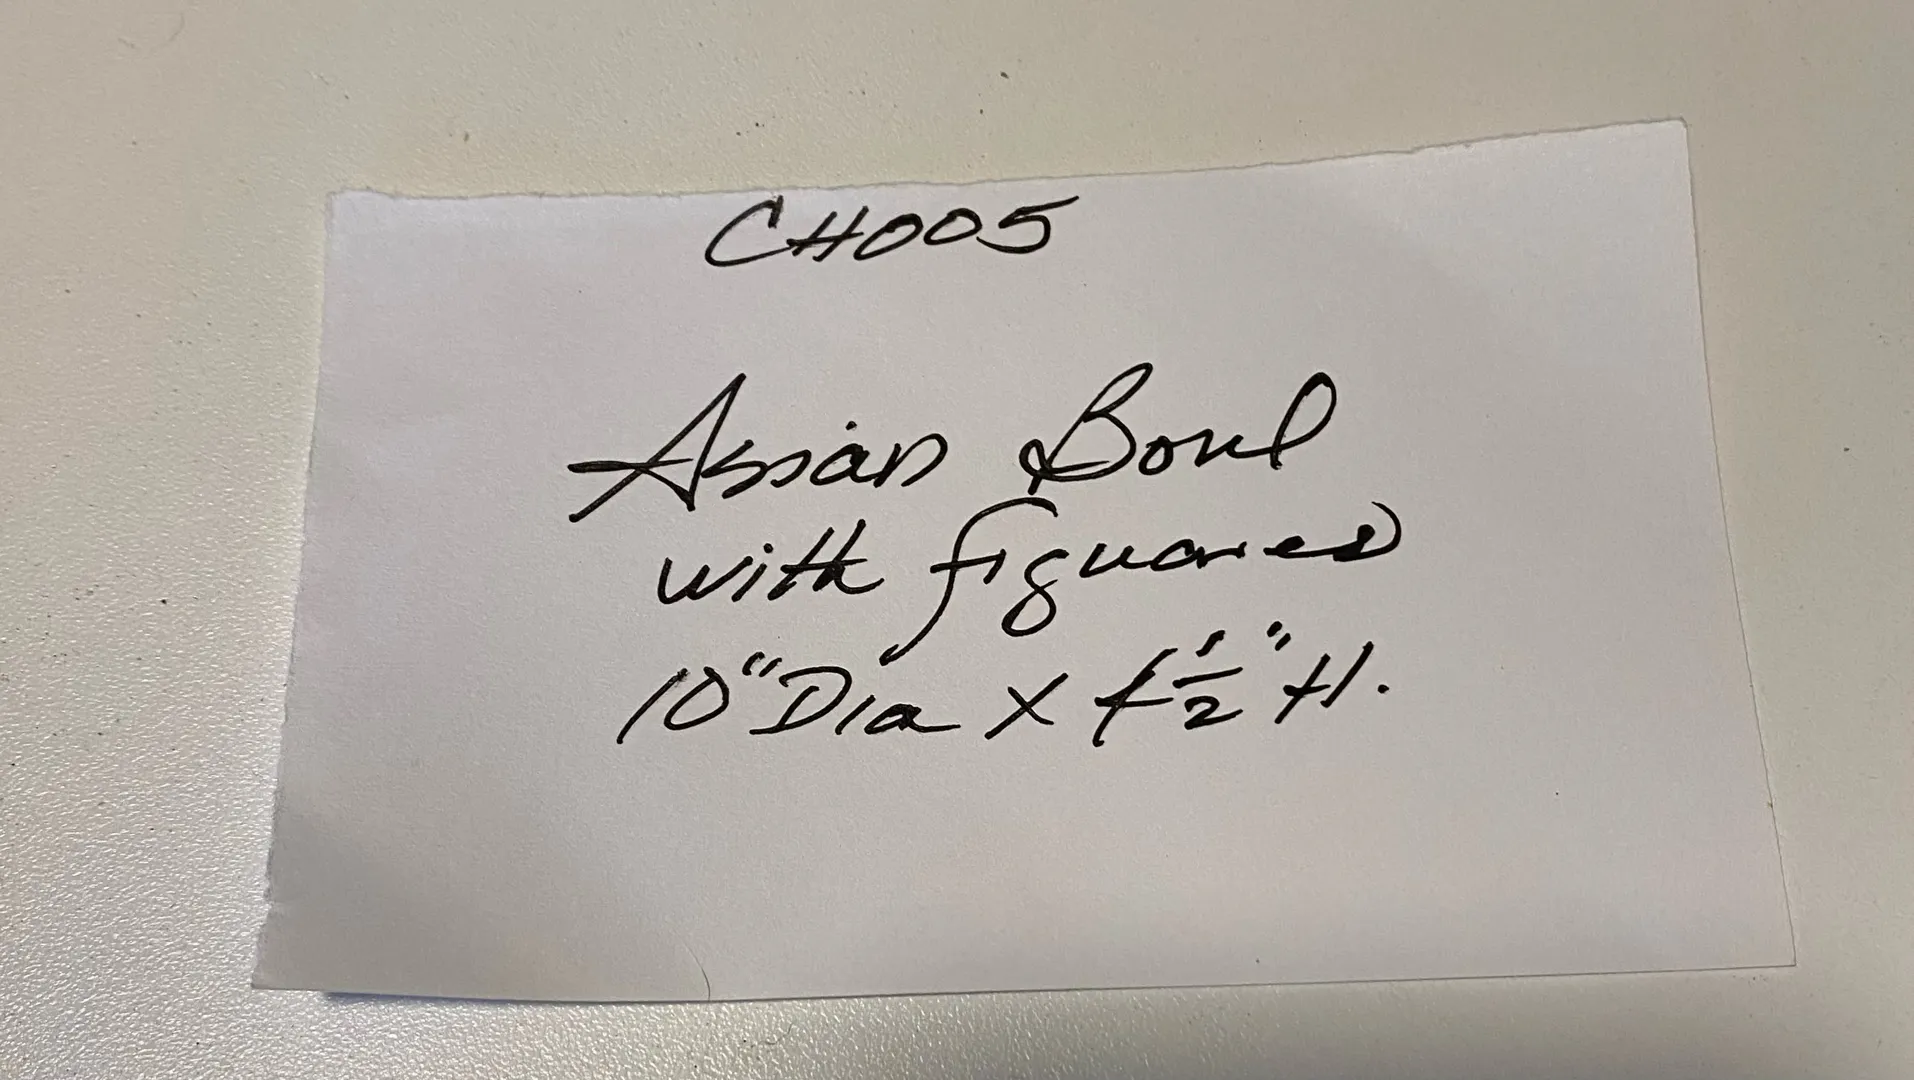 CH005
Assian Bowl
with figuares
10" Dia X 4 1/2" H.